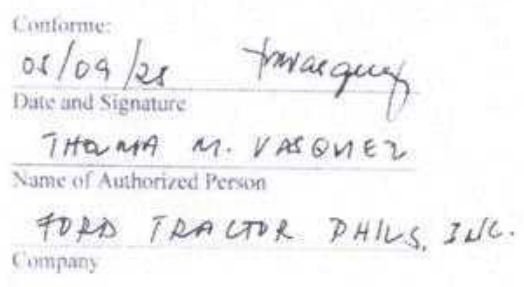 Conforme:
05/09/25 tmvasquez
Date and Signature
THELMA M. VASQUEZ
Name of Authorized Person
FORD TRACTOR PHILS, INC.
Company